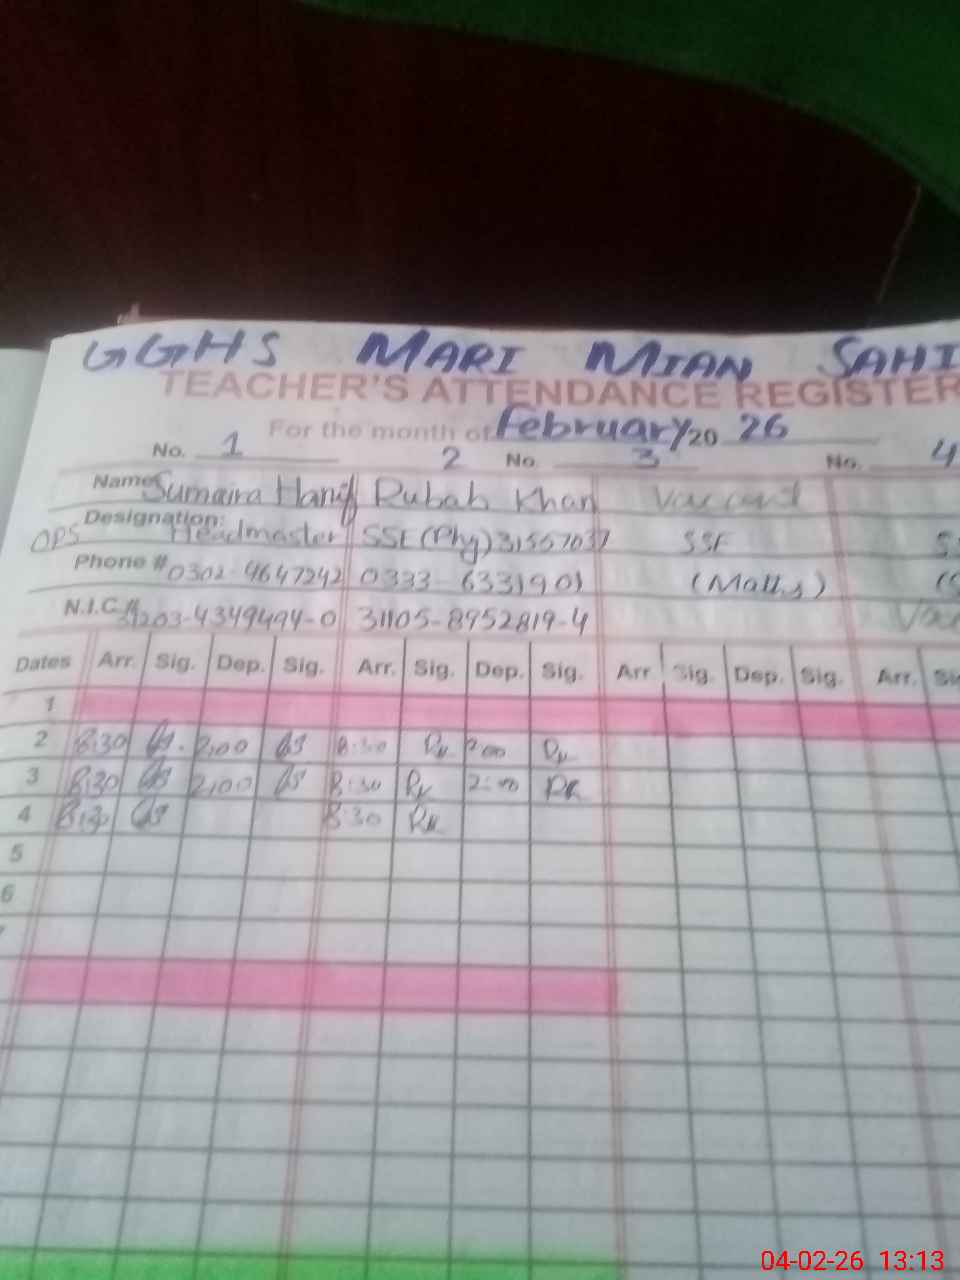 GGHS MARI MIAN SAHI
TEACHER'S ATTENDANCE REGISTER
For the month of February 20 26
No. 1 2 No. 3 No. 4
Name Sumaira Hanif Rubah Khan Vaccant
Designation: OPS Headmaster SSE(Phy) 31567037 SSE
Phone # 0302-4647242 0333-6331901 (Maths)
N.I.C.# 31203-4349494-0 31105-8952819-4
Dates Arr. Sig. Dep. Sig. Arr. Sig. Dep. Sig. Arr Sig. Dep. Sig. Arr.
1
2 8:30 2,00 8:30 200
3 8:30 2,00 8:30 2:00
4 8:30 8:30
5
6
04-02-26 13:13